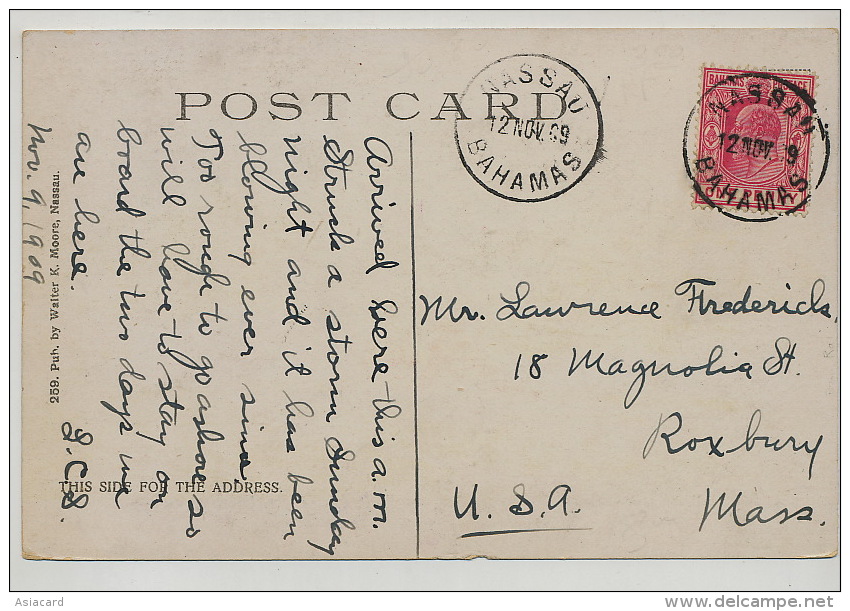 POST CARD
NASSAU
12 NOV. 09
BAHAMAS
NASSAU
12 NOV. 9
BAHAMAS
Arrived here this a.m.
Struck a storm Sunday
night and it has been
blowing ever since.
Too rough to go ashore so
will have to stay on
board the two days we
are here.
Nov. 9, 1909
259. Pub. by Walter K. Moore, Nassau.
THIS SIDE FOR THE ADDRESS.
Mr. Lawrence Frederick,
18 Magnolia St.
Roxbury
Mass.
U.S.A.
Asiacard
delcampe.net